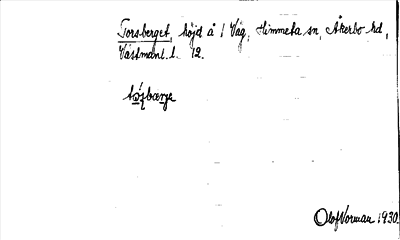 Torsberget, höjd å 1 Våg, Himmeta sn, Åkerbo hd,
Västmanl. l. 12.
Olof Norman 1930.